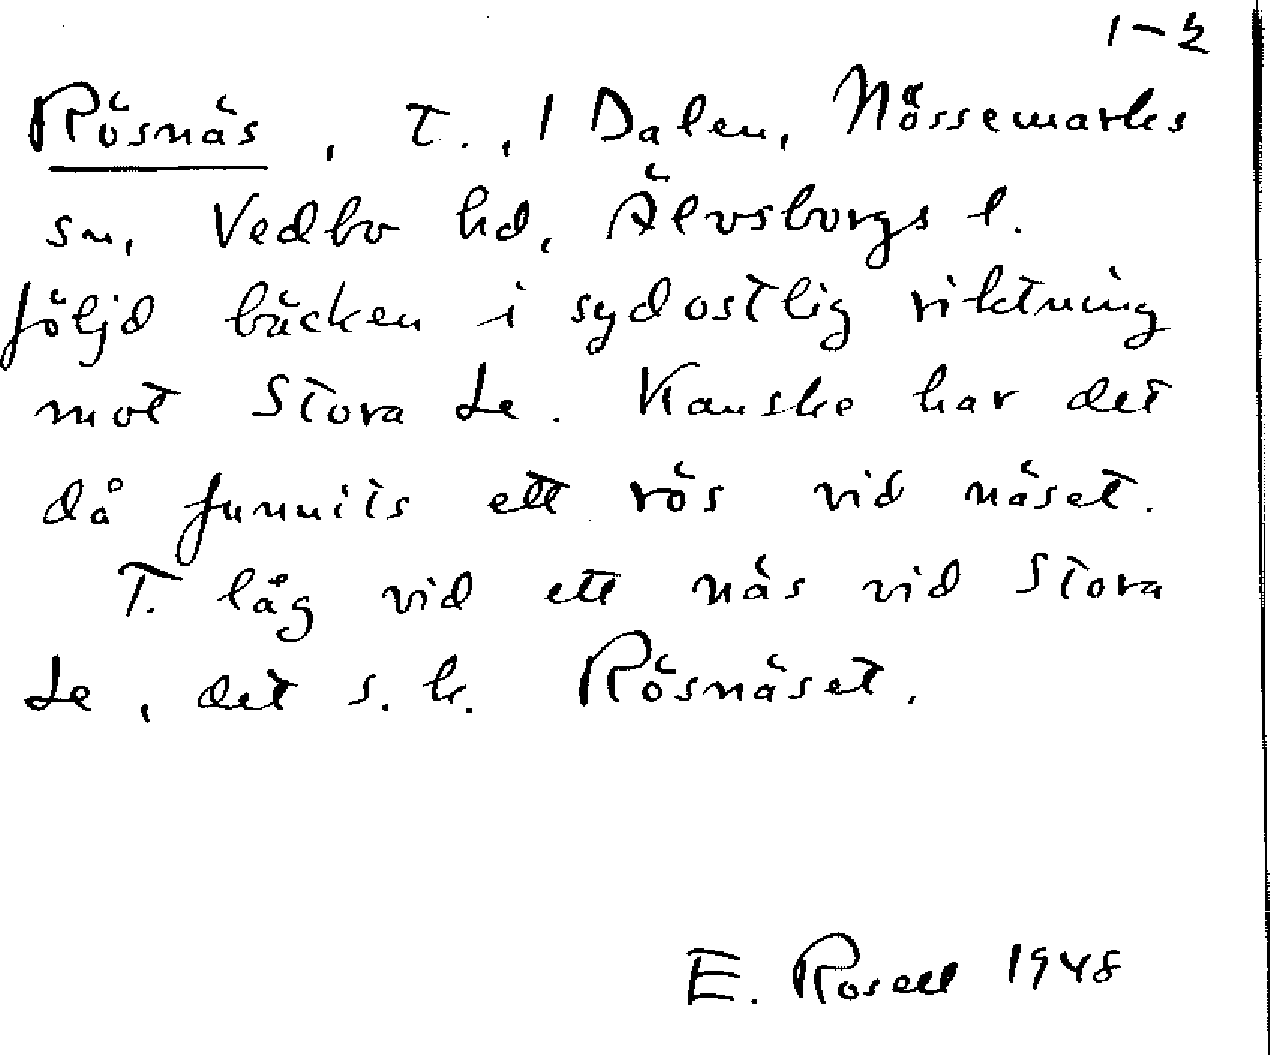 1-2
Rösnäs, t., 1 Dalen, Nössemarks
sn, Vedbo hd, Älvsborgs l.
följd bäcken i sydostlig riktning
mot Stora Le. Kanske har det
då funnits ett rös vid näset.
T. låg vid ett näs vid Stora
Le, det s.k. Rösnäset.
E. Rosell 1948